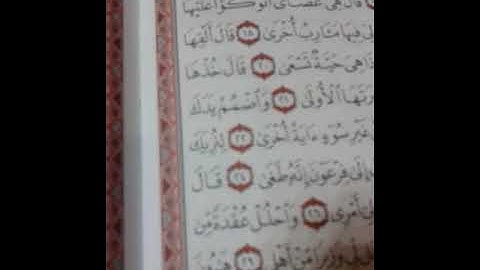 قَالَ هِىَ عَصَاىَ أَتَوَكَّؤُا۟ عَلَيْهَا
لِىَ فِيهَا مَـَٔارِبُ أُخْرَىٰ ١٨ قَالَ أَلْقِهَا
ذَا هِىَ حَيَّةٌ تَسْعَىٰ ٢٠ قَالَ خُذْهَا
رَتَهَا ٱلْأُولَىٰ ٢١ وَٱضْمُمْ يَدَكَ
غَيْرِ سُوٓءٍ ءَايَةً أُخْرَىٰ ٢٢ لِنُرِيَكَ
إِلَىٰ فِرْعَوْنَ إِنَّهُۥ طَغَىٰ ٢٤ قَالَ
أَمْرِى ٢٦ وَٱحْلُلْ عُقْدَةً مِّن
لِّى وَزِيرًا مِّنْ أَهْلِى ٢٩ هَٰرُونَ